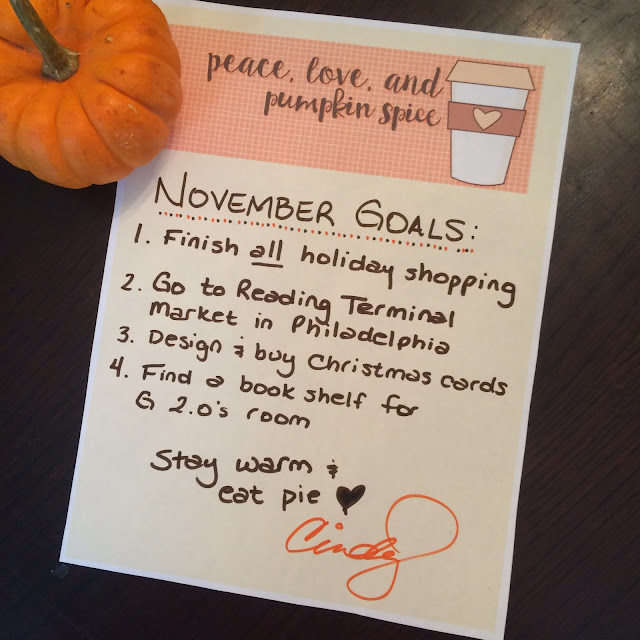 peace, love, and
pumpkin spice
NOVEMBER GOALS:
1. Finish all holiday shopping
2. Go to Reading Terminal
Market in Philadelphia
3. Design & buy Christmas cards
4. Find a book shelf for
G 2.0's room
Stay warm &
eat pie ♥
Cindy